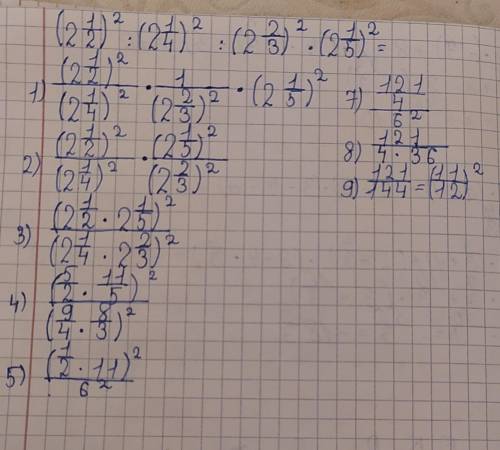 (2 1/2)² : (2 1/4)² : (2 2/3)² · (2 1/5)² =
1) (2 1/2)² / (2 1/4)² · 1 / (2 2/3)² · (2 1/5)²
2) (2 1/2)² / (2 1/4)² · (2 1/5)² / (2 2/3)²
3) (2 1/2 · 2 1/5)² / (2 1/4 · 2 2/3)²
4) (5/2 · 11/5)² / (9/4 · 8/3)²
5) (1/2 · 11)² / 6²
7) 121/4 / 6²
8) 121 / 4 · 36
9) 121/144 = (11/12)²